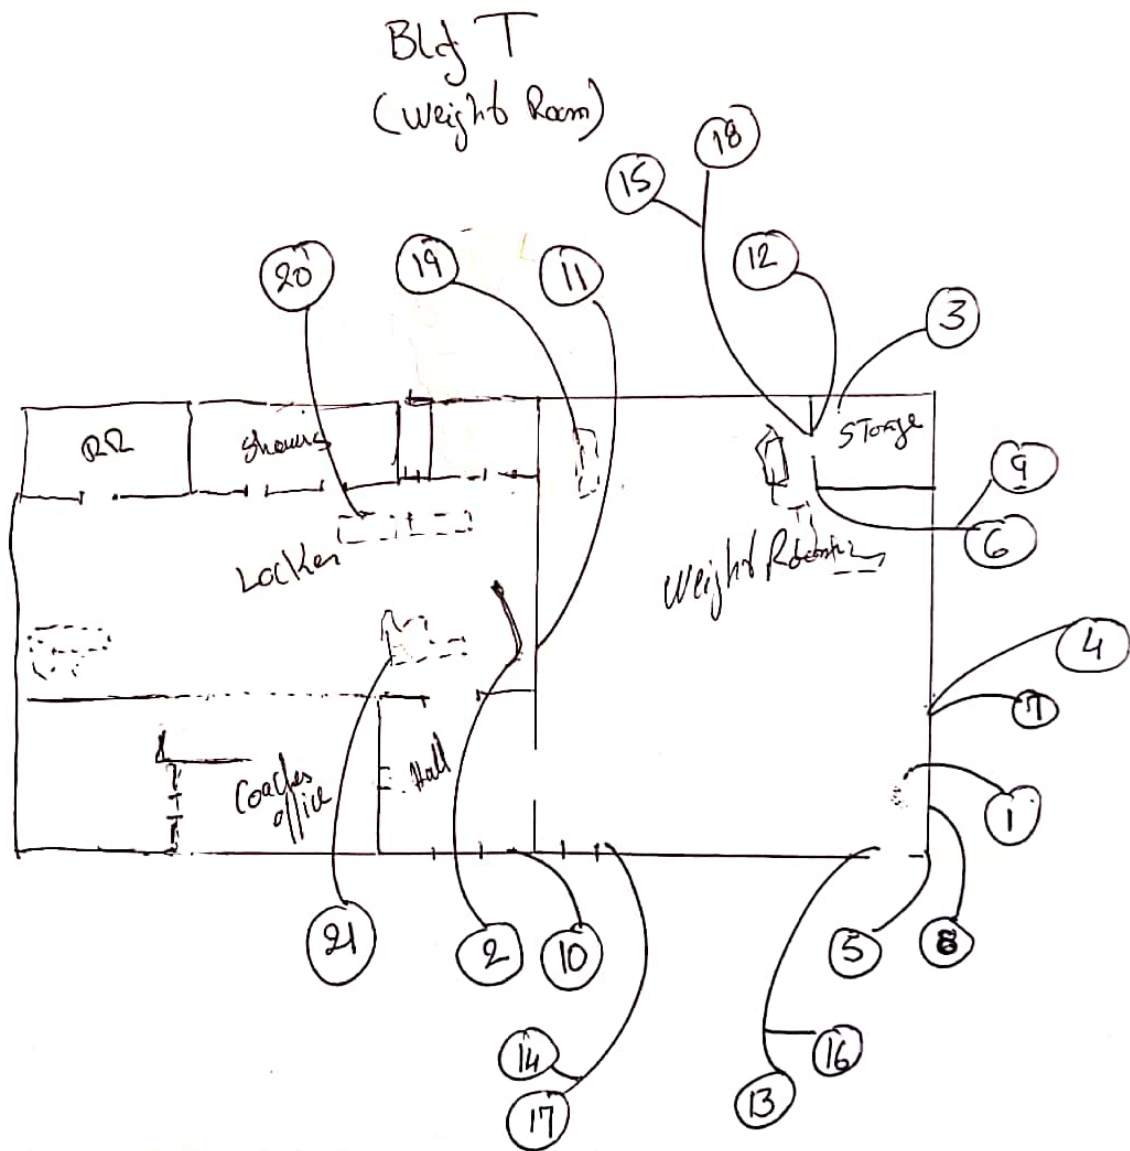 Bldg T
(Weight Room)
18
15
12
20
19
11
3
RR
Showers
Storage
9
6
Locker
Weight Room
4
7
Coaches
office
Hall
1
21
2
10
5
8
14
16
17
13